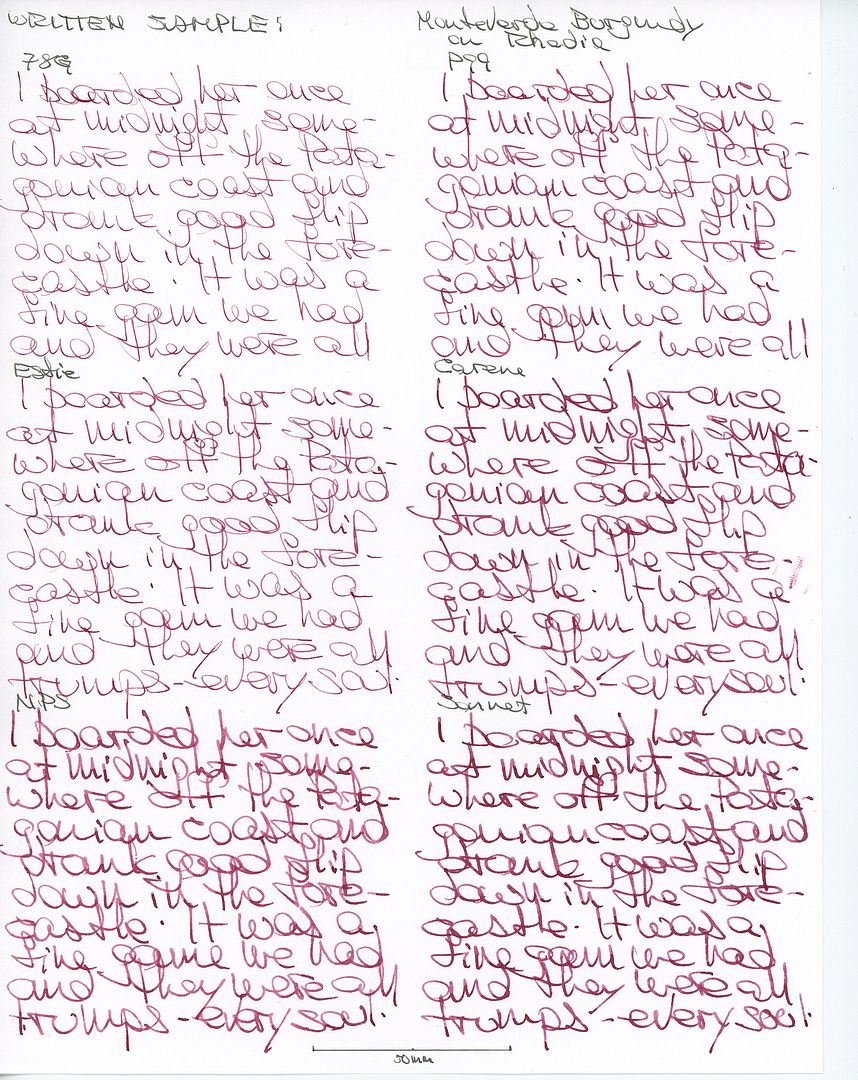 WRITTEN SAMPLE:
Monteverde Burgundy
on Rhodia
78G
I boarded her once
at midnight some-
where off the Pata-
gonian coast and
drank good flip
down in the fore-
castle. It was a
fine gam we had
and they were all
P99
I boarded her once
at midnight some-
where off the Pata-
gonian coast and
drank good flip
down in the fore-
castle. It was a
fine gam we had
and they were all
Estie
I boarded her once
at midnight some-
where off the Pata-
gonian coast and
drank good flip
down in the fore-
castle. It was a
fine gam we had
and they were all
trumps--every soul.
Carene
I boarded her once
at midnight some-
where off the Pata-
gonian coast and
drank good flip
down in the fore-
castle. It was a
fine gam we had
and they were all
trumps--every soul.
NPS
I boarded her once
at midnight some-
where off the Pata-
gonian coast and
drank good flip
down in the fore-
castle. It was a
fine game we had
and they were all
trumps--every soul.
Sonnet
I boarded her once
at midnight some-
where off the Pata-
gonian coast and
drank good flip
down in the fore-
castle. It was a
fine gam we had
and they were all
trumps--every soul.
50mm